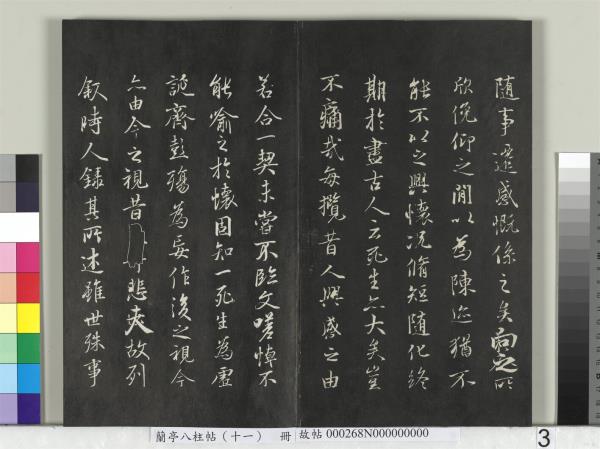 隨事遷感慨係之矣向之所
欣俛仰之間以為陳迹猶不
能不以之興懷況脩短隨化終
期於盡古人云死生亦大矣豈
不痛哉每攬昔人興感之由
若合一契未嘗不臨文嗟悼不
能喻之於懷固知一死生為虛
誕齊彭殤為妄作後之視今
亦由今之視昔悲夫故列
敘時人錄其所述雖世殊事
蘭亭八柱帖（十一） 冊 故帖 000268N000000000
3